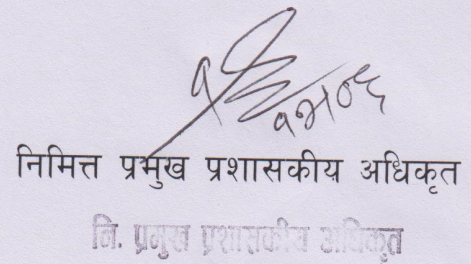 निमित्त प्रमुख प्रशासकीय अधिकृत
नि. प्रमुख प्रशासकीय अधिकृत